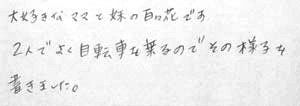 大好きなママと妹の百花です
2人でよく自転車を乗るのでその様子を
書きました。